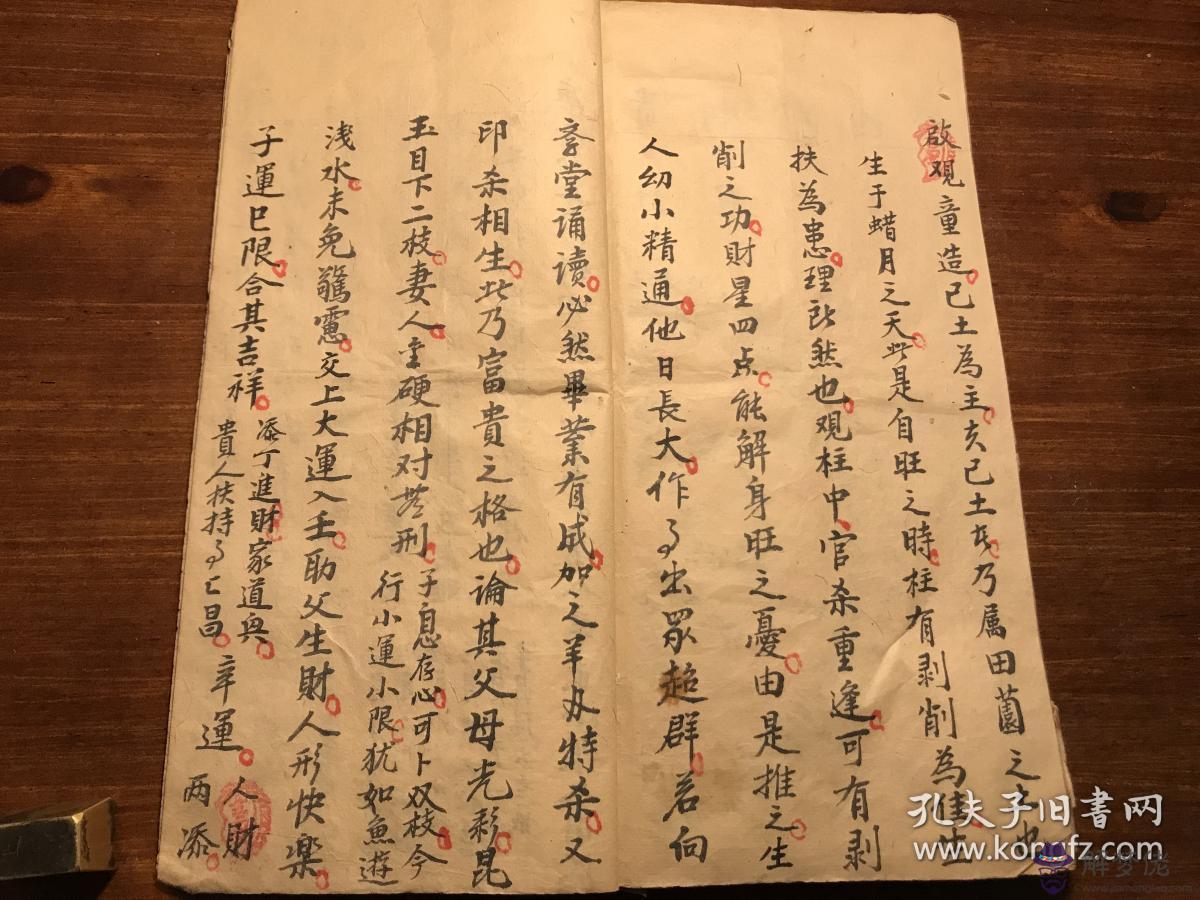 啟观童造己土為主亥己土者乃属田薗之土也
生于蜡月之天此是自旺之時柱有剥削為佳生
扶為患理所然也观柱中官杀重逢可有剥
削之功財星四点能解身旺之憂由是推之生
人幼小精通他日長大作事出眾超群若向
斈堂诵读必然畢業有成加之羊刃特杀又
印杀相生此乃富貴之格也論其父母光彩昆
玉目下二枝妻人主硬相对若刑
子息存心可卜双枝今
行小運小限犹如魚遊
浅水未免驚慮交上大運入壬助父生財人形快樂
子運巳限合其吉祥
添丁進財家道興
貴人扶持事亡昌
辛運
人財
两添
孔夫子旧書网
www.kongfz.com
解梦佬
www.jiemenglao.com